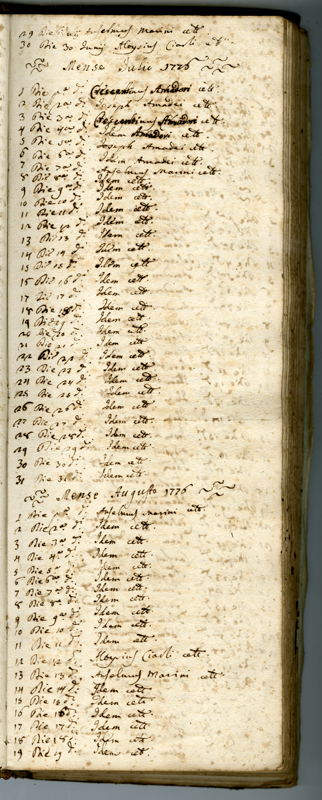 29 Die Anselmus Marini cett
30 Die 30 Junij Aloysius Ciarli cett
Mense Julio 1726
1 Die pa d. Crescentinus Amadori cett
2 Die 2a d. Joseph Amadei cett
3 Die 3a d. Crescentinus Amadori cett
4 Die 4a d. Idem Amadori cett
5 Die 5a d. Joseph Amadei cett
6 Die 6a d. Idem Amadei cett
7 Die 7a d. Anselmus Marini cett
8 Die 8a d. Idem cett
9 Die 9a d. Idem cett
10 Die 10 d. Idem cett
11 Die 11 d. Idem cett
12 Die 12 d. Idem cett
13 Die 13 d. Idem cett
14 Die 14 d. Idem cett
15 Die 15 d. Idem cett
16 Die 16 d. Idem cett
17 Die 17 d. Idem cett
18 Die 18 d. Idem cett
19 Die 19 d. Idem cett
20 Die 20 d. Idem cett
21 Die 21 d. Idem cett
22 Die 22 d. Idem cett
23 Die 23 d. Idem cett
24 Die 24 d. Idem cett
25 Die 25 d. Idem cett
26 Die 26 d. Idem cett
27 Die 27 d. Idem cett
28 Die 28 d. Idem cett
29 Die 29 d. Idem cett
30 Die 30 d. Idem cett
31 Die 31 d. Idem cett
Mense Augusto 1726
1 Die pa d. Anselmus Marini cett
2 Die 2a d. Idem cett
3 Die 3a d. Idem cett
4 Die 4a d. Idem cett
5 Die 5a d. Idem cett
6 Die 6a d. Idem cett
7 Die 7a d. Idem cett
8 Die 8a d. Idem cett
9 Die 9a d. Idem cett
10 Die 10 d. Idem cett
11 Die 11 d. Idem cett
12 Die 12 d. Aloysius Ciarli cett
13 Die 13 d. Anselmus Marini cett
14 Die 14 d. Idem cett
15 Die 15 d. Idem cett
16 Die 16 d. Idem cett
17 Die 17 d. Idem cett
18 Die 18 d. Idem cett
19 Die 19 d. Idem cett